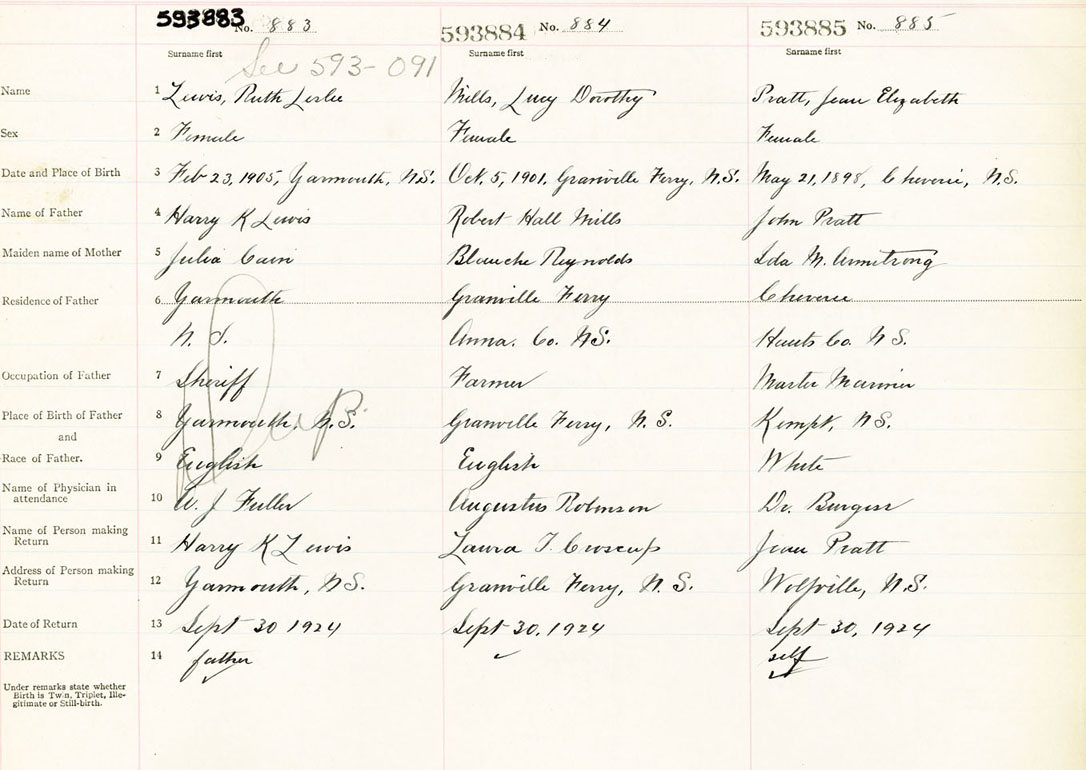 593883 No. 883 593884 No. 884 593885 No. 885
Surname first Surname first Surname first
See 593-091
Name 1 Lewis, Ruth Leslie Mills, Lucy Dorothy Pratt, Jean Elizabeth
Sex 2 Female Female Female
Date and Place of Birth 3 Feb 23, 1905, Yarmouth, N.S. Oct. 5, 1901, Granville Ferry, N.S. May 21, 1898, Cheverie, N.S.
Name of Father 4 Harry K Lewis Robert Hall Mills John Pratt
Maiden name of Mother 5 Julia Cain Blanche Reynolds Ida M. Armstrong
Residence of Father 6 Yarmouth Granville Ferry Cheverie
N. S. Anna. Co. N.S. Hants Co. N S.
Occupation of Father 7 Sheriff Farmer Master Mariner
Place of Birth of Father 8 Yarmouth, N.S. Granville Ferry, N. S. Kempt, N.S.
and
Race of Father. 9 English English White
Name of Physician in
attendance 10 W. J Fuller Augustus Robinson Dr. Burgess
Name of Person making
Return 11 Harry K Lewis Laura T. Croscup Jean Pratt
Address of Person making
Return 12 Yarmouth, N.S. Granville Ferry, N. S. Wolfville, N.S.
Date of Return 13 Sept 30 1924 Sept 30, 1924 Sept 30, 1924
REMARKS 14 father self
Under remarks state whether
Birth is Twin, Triplet, Ille-
gitimate or Still-birth.